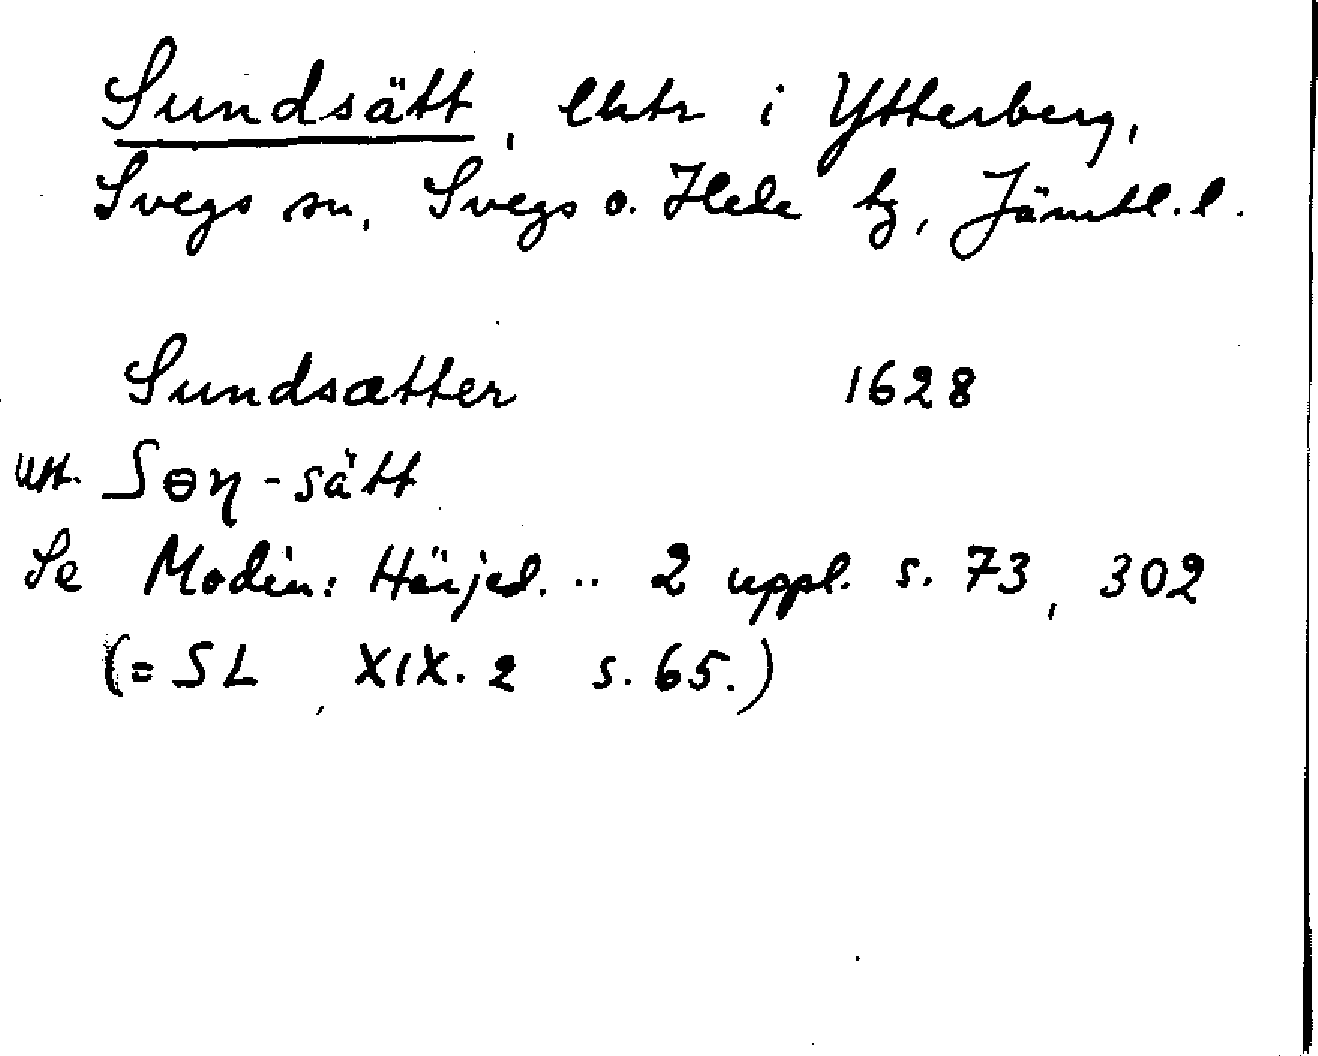 Sundsätt, lktr i Ytterberg,
Svegs sn, Svegs o. Hede tg, Jämtl. l.
Sundsætter 1628
utt. Sɵŋ-sätt
Se Modin: Härjed. .. 2 uppl. s. 73, 302
(= SL, XIX. 2 s. 65.)